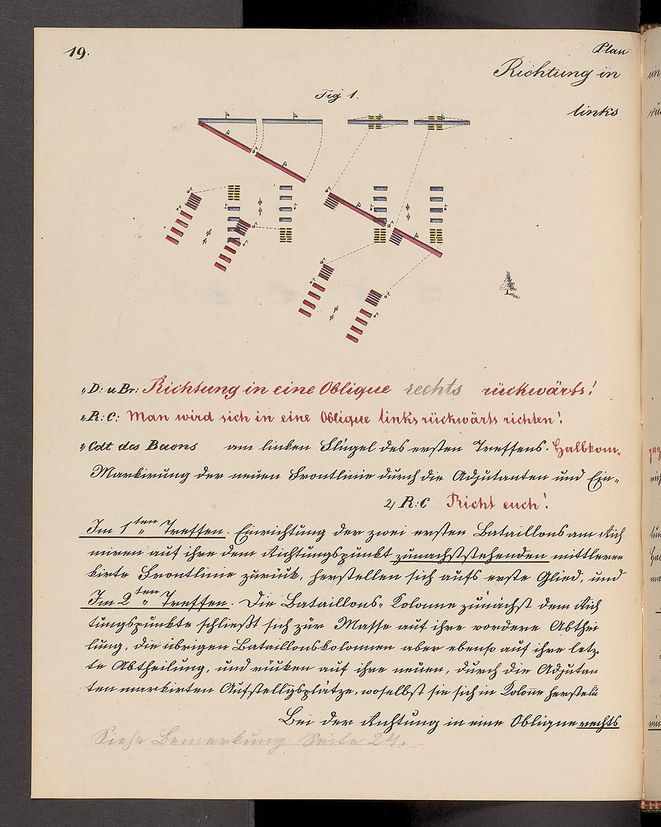 19.
Plan
Richtung in
links
Fig 1.
„D: u Br: Richtung in eine Oblique rechts rückwärts!
„R: C: Man wird sich in eine Oblique links rückwärts richten!
„Cdt des Baons am linken Flügel des ersten Treffens. Halbkom„
Markirung der neuen Frontlinie durch die Adjutanten und Ein„
2/ R: C Richt euch!
Im 1ten Treffen. Einrichtung der zwei ersten Bataillons am
miren auf ihre dem Richtungspunkt zunächststehenden mittleren
kirte Frontlinie zurück, herstellen sich aufs erste Glied, und
Im 2ten Treffen. Die Bataillons„ Kolonne zunächst dem Rich
tungspunkte schließt sich zur Masse auf ihre vordere Abthei
lung, die übrigen Bataillonskolonnen aber ebenso auf ihre letz
te Abtheilung, und rücken auf ihre neuen, durch die Adjutan
ten markirten Aufstellgsplätze, woselbst sie sich in Kolonne herstelln
Bei der Richtung in eine Oblique rechts
Siehe Bemerkung Seite 24.